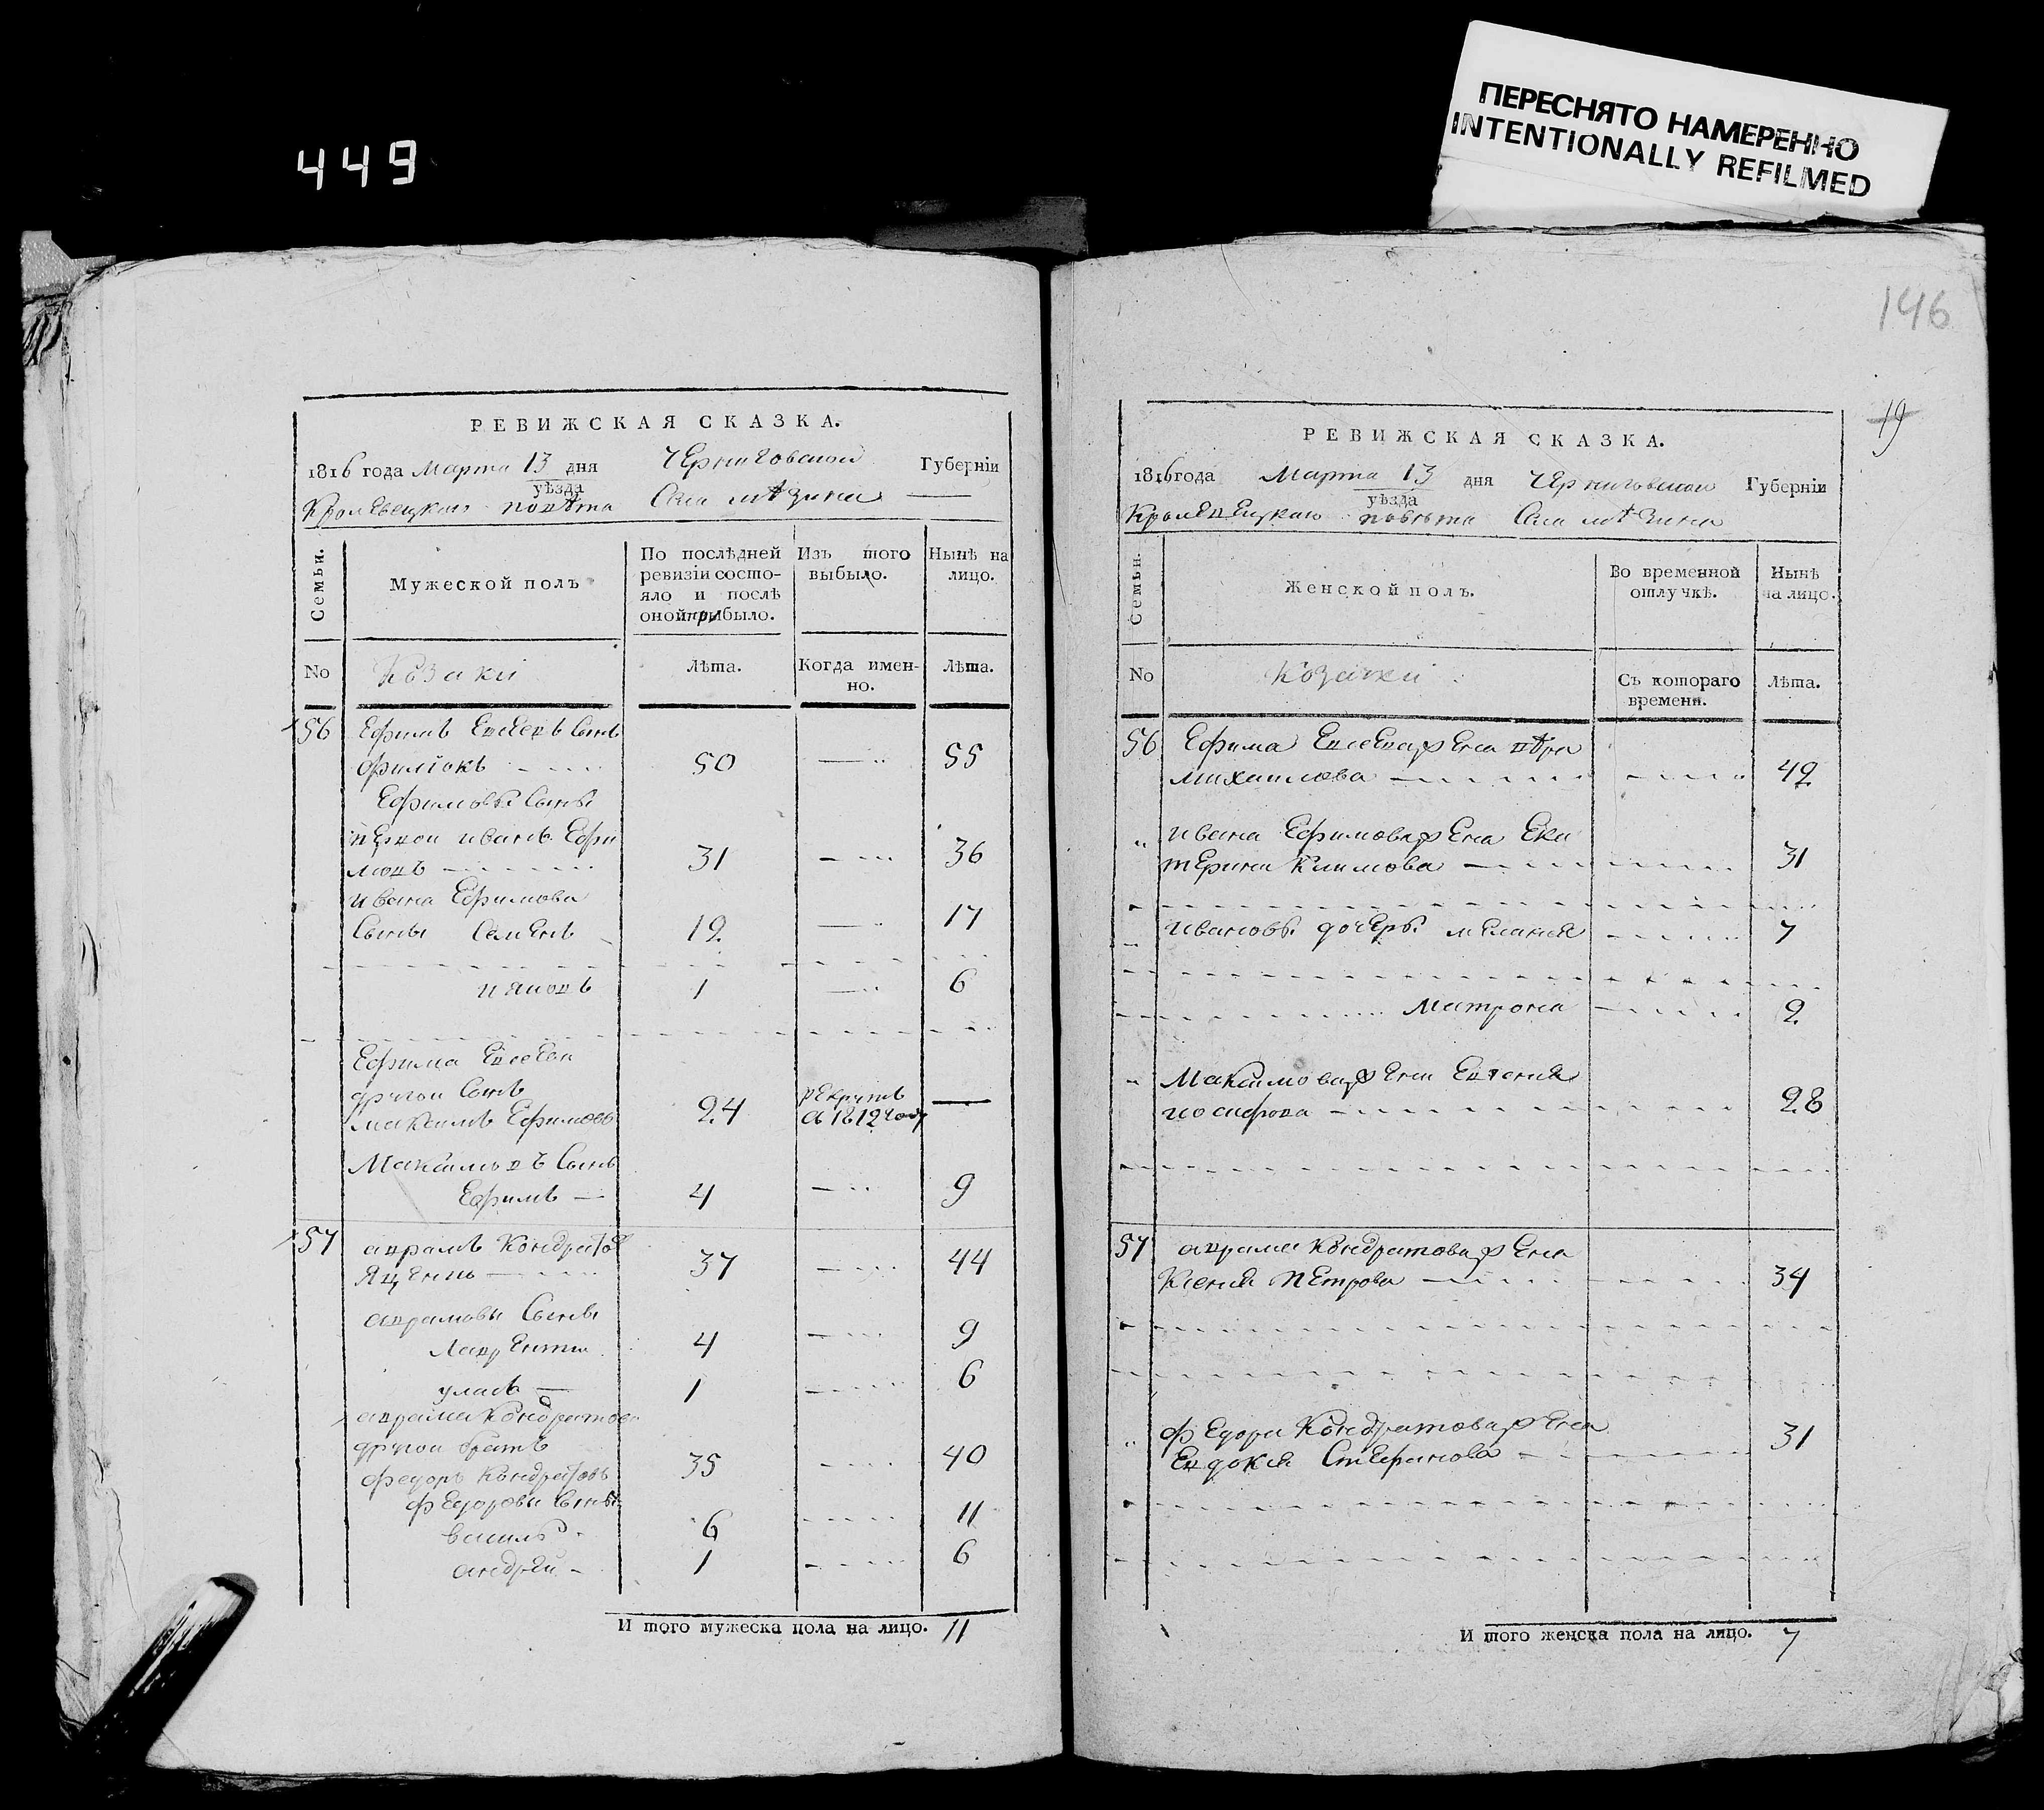 449
ПЕРЕСНЯТО НАМЕРЕННО
INTENTIONALLY REFILMED
146
19
РЕВИЖСКАЯ СКАЗКА.
1816 года Марта 13 дня Черниговской Губерніи
уѣзда
Кролевецкаго повѣта Села мѣзина
Семьи.
Мужеской полъ
По послѣдней ревизіи состо-
яло и послѣ
оной прибыло.
Изъ того
выбыло.
Нынѣ на
лицо.
No Козаки Лѣта. Когда имен-
но. Лѣта.
56 Ефимъ Евсеевъ Сынъ
Филіокъ 50 55
Ефимовы Сыны
первой иванъ Ефи
мовъ 31 36
ивана Ефимова
Сыны Семенъ 12 17
ияковъ 1 6
Ефима Евсеева
другой Сынъ
максимъ Ефимовъ 24 рекрутъ
в 1812 году
Максимовъ Сынъ
Ефимъ 4 9
57 аврамъ Кондратов
Яценко 37 44
аврамовы Сыны
Лаврентии 4 9
уласъ 1 6
аврама Кондратова
другои братъ
федоръ Кондратовъ 35 40
федоровы Сыны
василь 6 11
андрей 1 6
И того мужеска пола на лицо. 11
РЕВИЖСКАЯ СКАЗКА.
1816 года Марта 13 дня Черниговской Губерніи
уѣзда
Кролевецкаго повѣта Села мѣзина
Семьи.
Женской полъ.
Во временной
отлучкѣ.
Нынѣ
на лицо.
No Козачки Съ котораго
времени. Лѣта.
56 Ефима Евсеева жена вѣра
михаилова 42
ивана Ефимова жена Ека
терина Климова 31
ивановы дочеры мелания 7
Матрона 2
Максимова жена Евгения
иосифова 28
57 аврама Кондратова жена
Ксения Петрова 34
федора Кондратова жена
Евдокия Стефанова 31
И того женска пола на лицо. 7